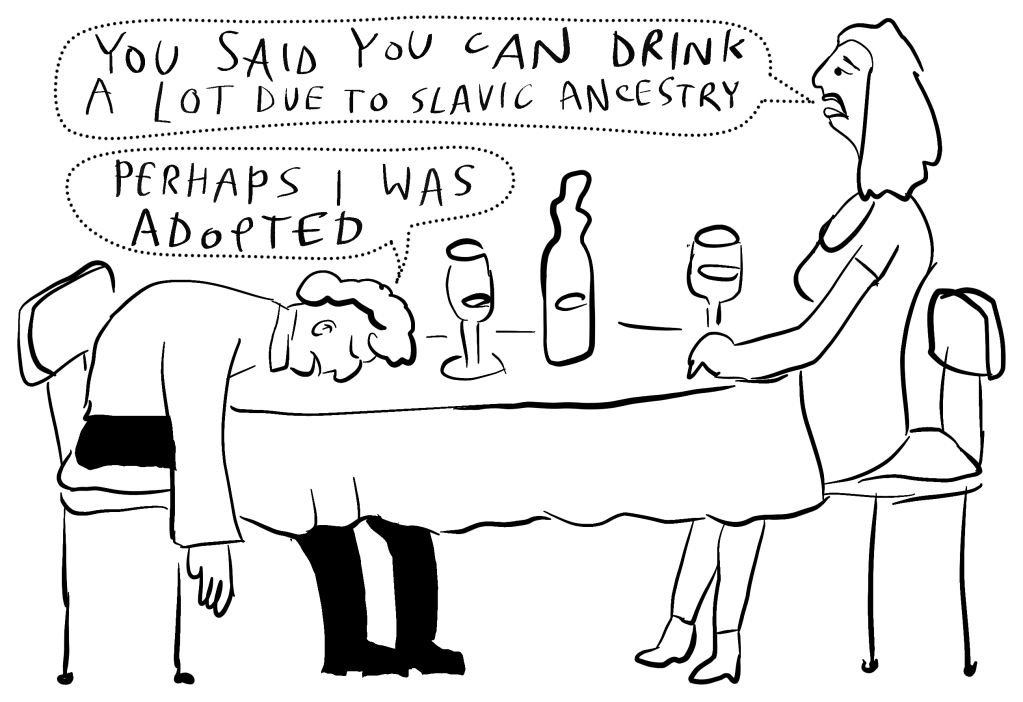 YOU SAID YOU CAN DRINK
A LOT DUE TO SLAVIC ANCESTRY
PERHAPS I WAS
ADOPTED